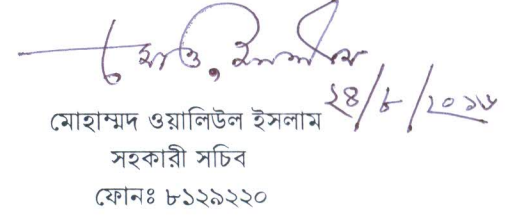 মোঃ ও, ইসলাম
২৪/৮/২০১৬
মোহাম্মদ ওয়ালিউল ইসলাম
সহকারী সচিব
ফোনঃ ৮১২৯২২০